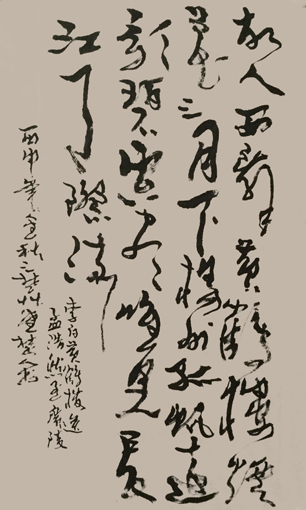 故人西辞黄鶴樓煙
花三月下揚州孤帆遠
影碧空尽唯見長
江天際流
李白黄鶴樓送
孟浩然之廣陵
丙申年金秋